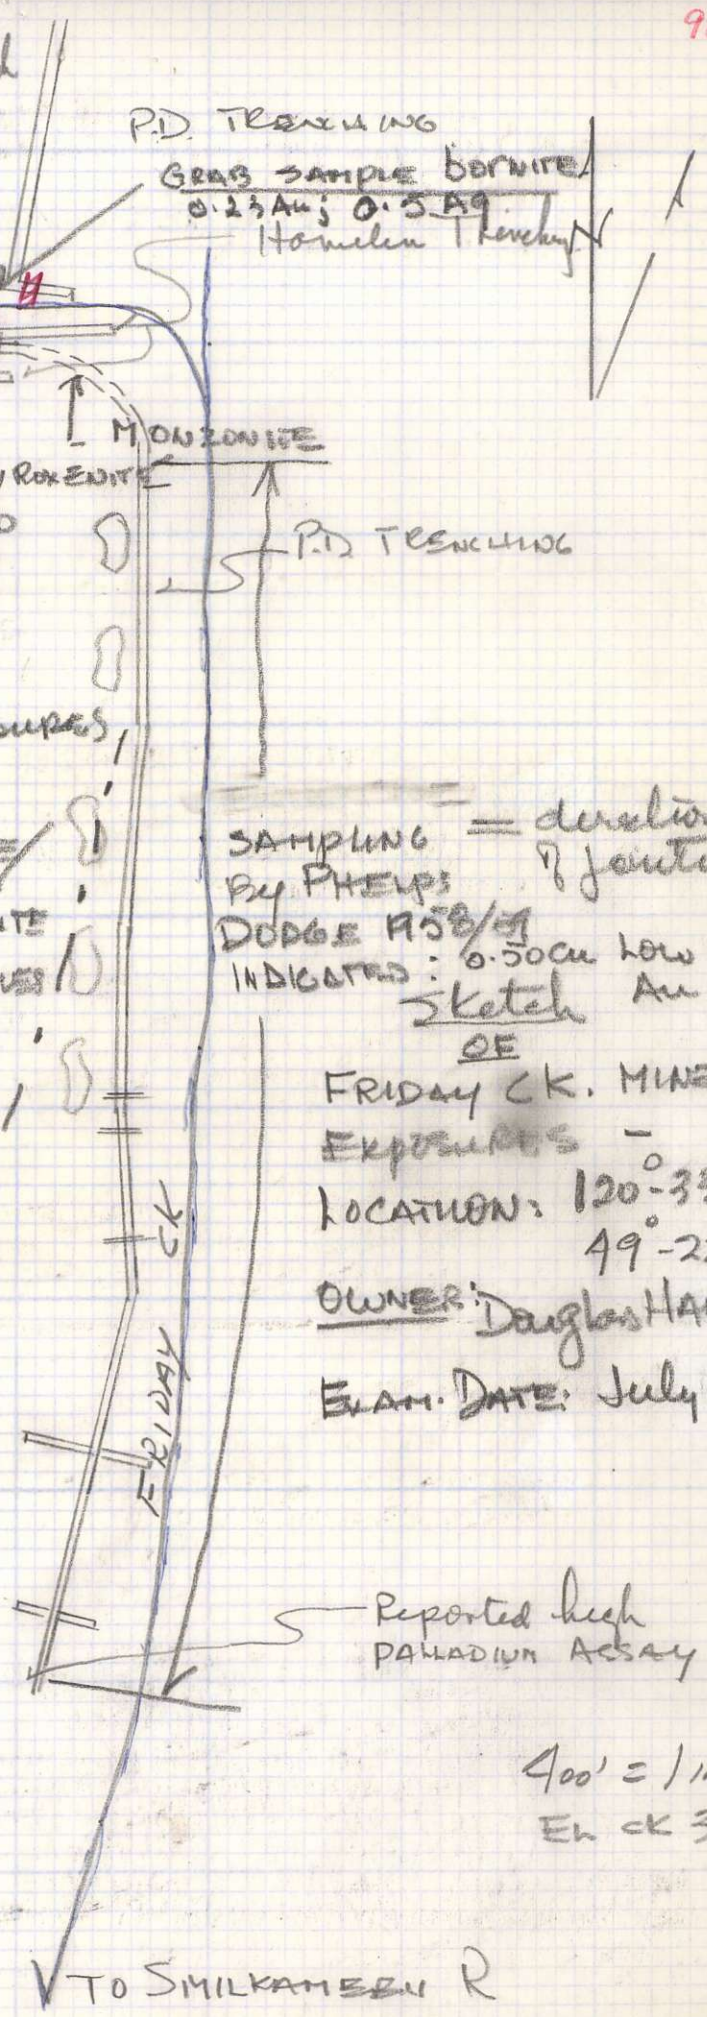 P.D. TRENCHING
GRAB SAMPLE bornite
0.23 Au; 0.5 Ag
Trenching
N
MONZONITE
YROXENITE
P.D. TRENCHING
SURES
SAMPLING
By PHELPS
DODGE 1958/59
INDICATED: 0.50 Cu Low
Au
= direction
of joints
Sketch
OF
FRIDAY CK. MINE
EXPOSURES -
LOCATION: 120°-33
49°-2
OWNER: Douglas HA
EXAM. DATE: July
FRIDAY CK
Reported high
PALLADIUM ASSAY
400' = 1 in
El. CK 3
TO SIMILKAMEEN R